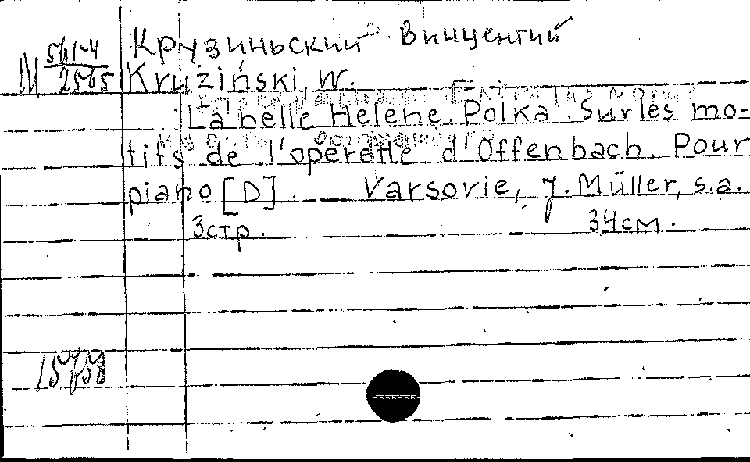 Крузиньский Винцентий
М 561-4/2565 Kruziński, W.
La belle Helene. Polka sur les mo-
tifs de l'operette d'Offenbach. Pour
piano [D]. Varsovie, J. Müller, s.a.
3стр. 34см.
15758